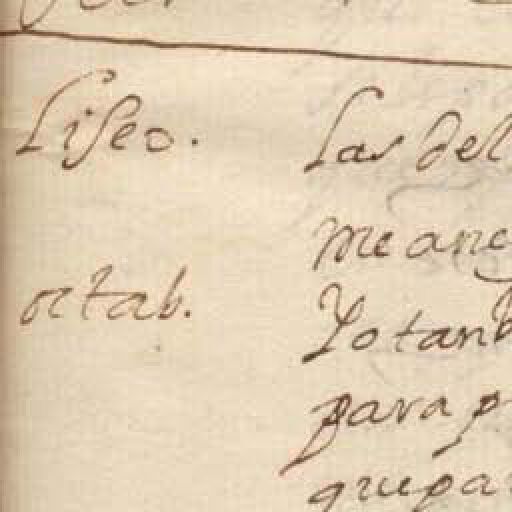 Liseo. Las del
me ane
octab. Yo tanb
para p
que pa